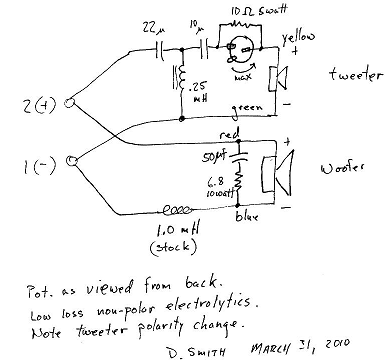 10 Ω 5watt
22 μ
10 μ
yellow
+
max
tweeter
.25
mH
-
green
2 (+)
red
+
50μf
1 (-)
woofer
6.8
10watt
-
blue
1.0 mH
(stock)
Pot. as viewed from back.
Low loss non-polar electrolytics.
Note tweeter polarity change.
D. Smith MARCH 31, 2010